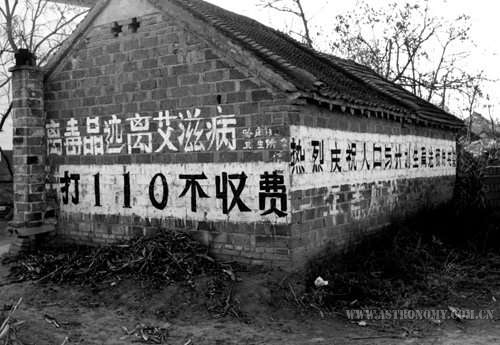 离毒品远离艾滋病
卫生所
打110不收费
热烈庆祝人口与计划生育
WWW.ASTRONOMY.COM.CN